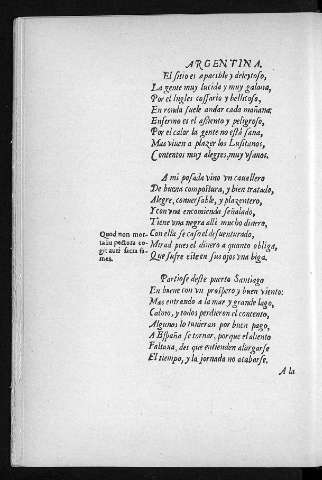 ARGENTINA.
El sitio es apacible y deleytoso,
La gente muy lucida y muy galana,
Por el Ingles cossario y bellicoso,
En ronda suele andar cada mañana:
Enfermo es el assiento y peligroso,
Por el calor la gente no està sana,
Mas viuen a plazer los Lusitanos,
Contentos muy alegres, muy vfanos.
A mi posada vino vn cauallero
De buena compostura, y bien tratado,
Alegre, conuersable, y plazentero,
Y con vna encomienda señalado,
Tiene vna negra alli mucho dinero,
Con ella se casò el desuenturado,
Mirad pues el dinero a quanto obliga,
Que sufre este en sus ojos vna biga.
Quod non mor-
talia pectora co-
git auri sacra fa-
mes.
Partiose deste puerto Santiago
En bueno con vn prospero y buen viento:
Mas entrando a la mar y grande lago,
Calmò, y todos perdieron el contento,
Algunos lo tuuieran por buen pago,
A España se tornar, porque el aliento
Faltaua, des que entienden alargarse
El tiempo, y la jornada no acabarse.
A la